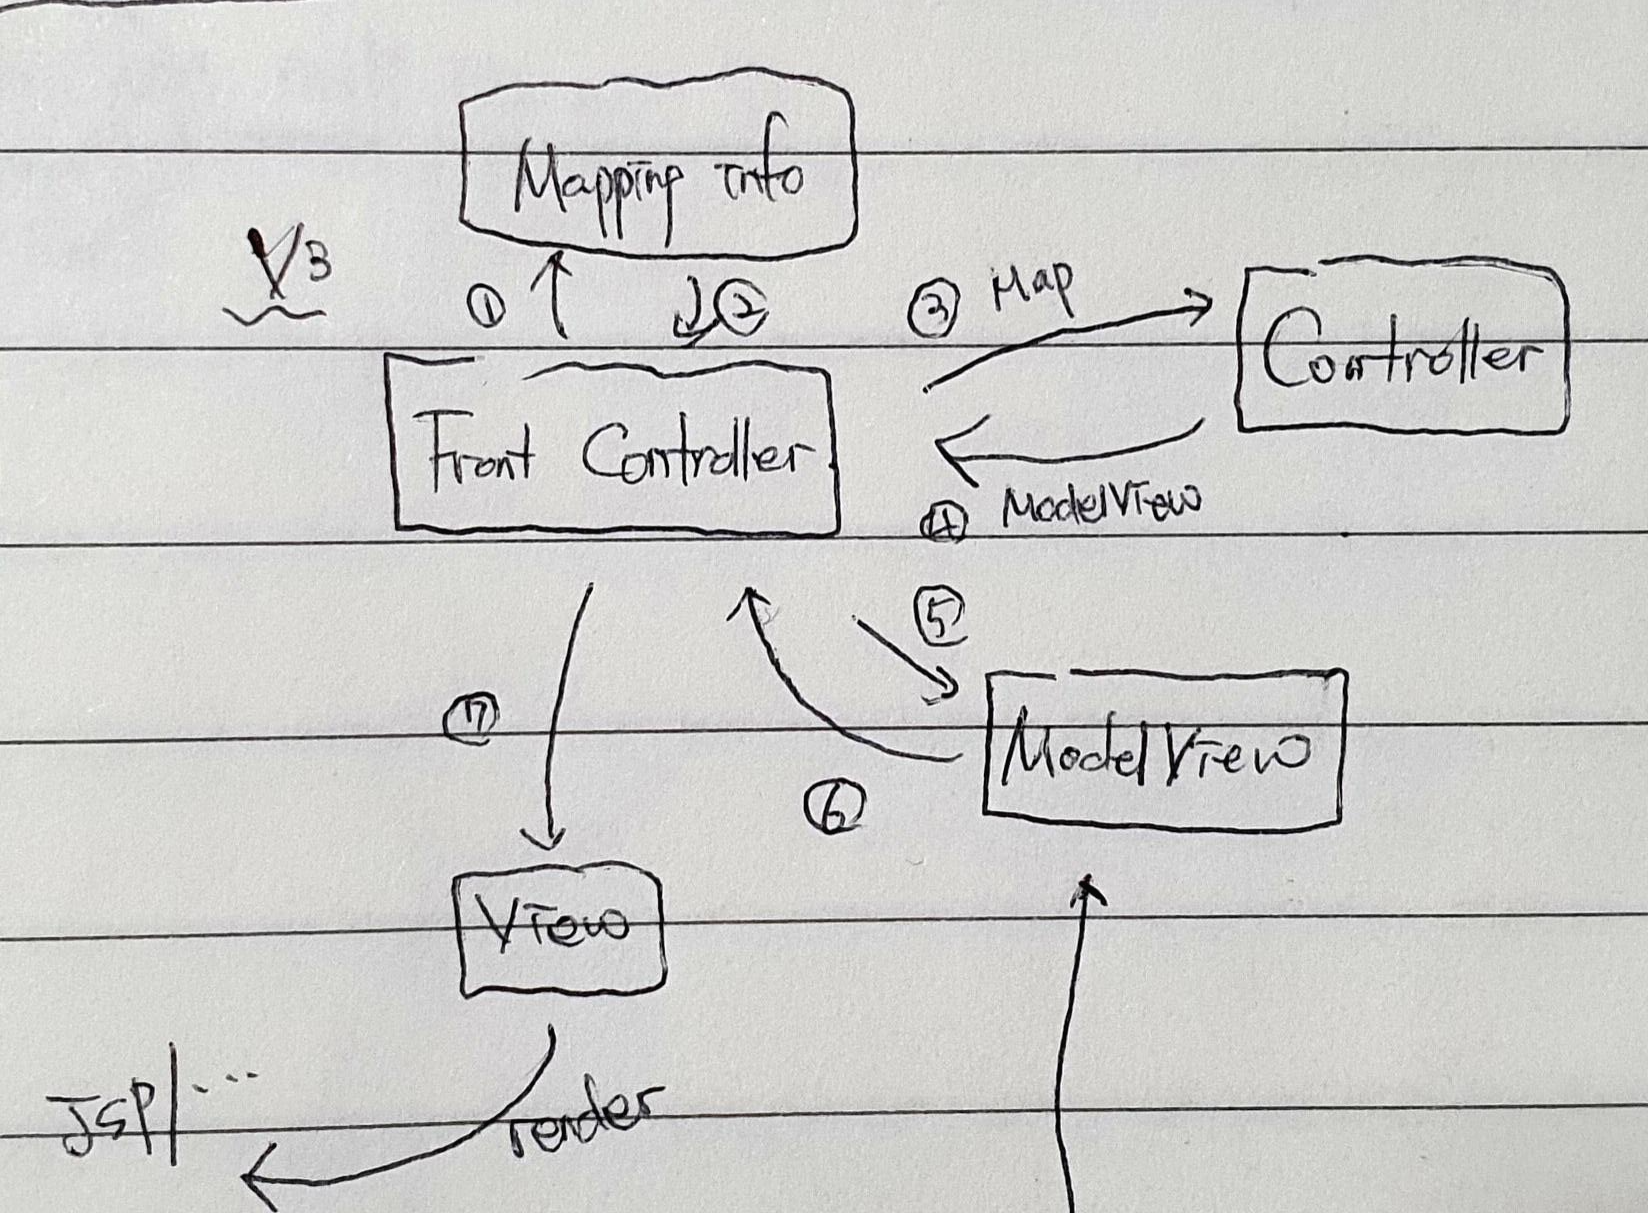 Mapping info
V3
① ② ③ Map
Controller
Front Controller
④ ModelView
⑤
⑦
ModelView
⑥
View
JSP/...
render